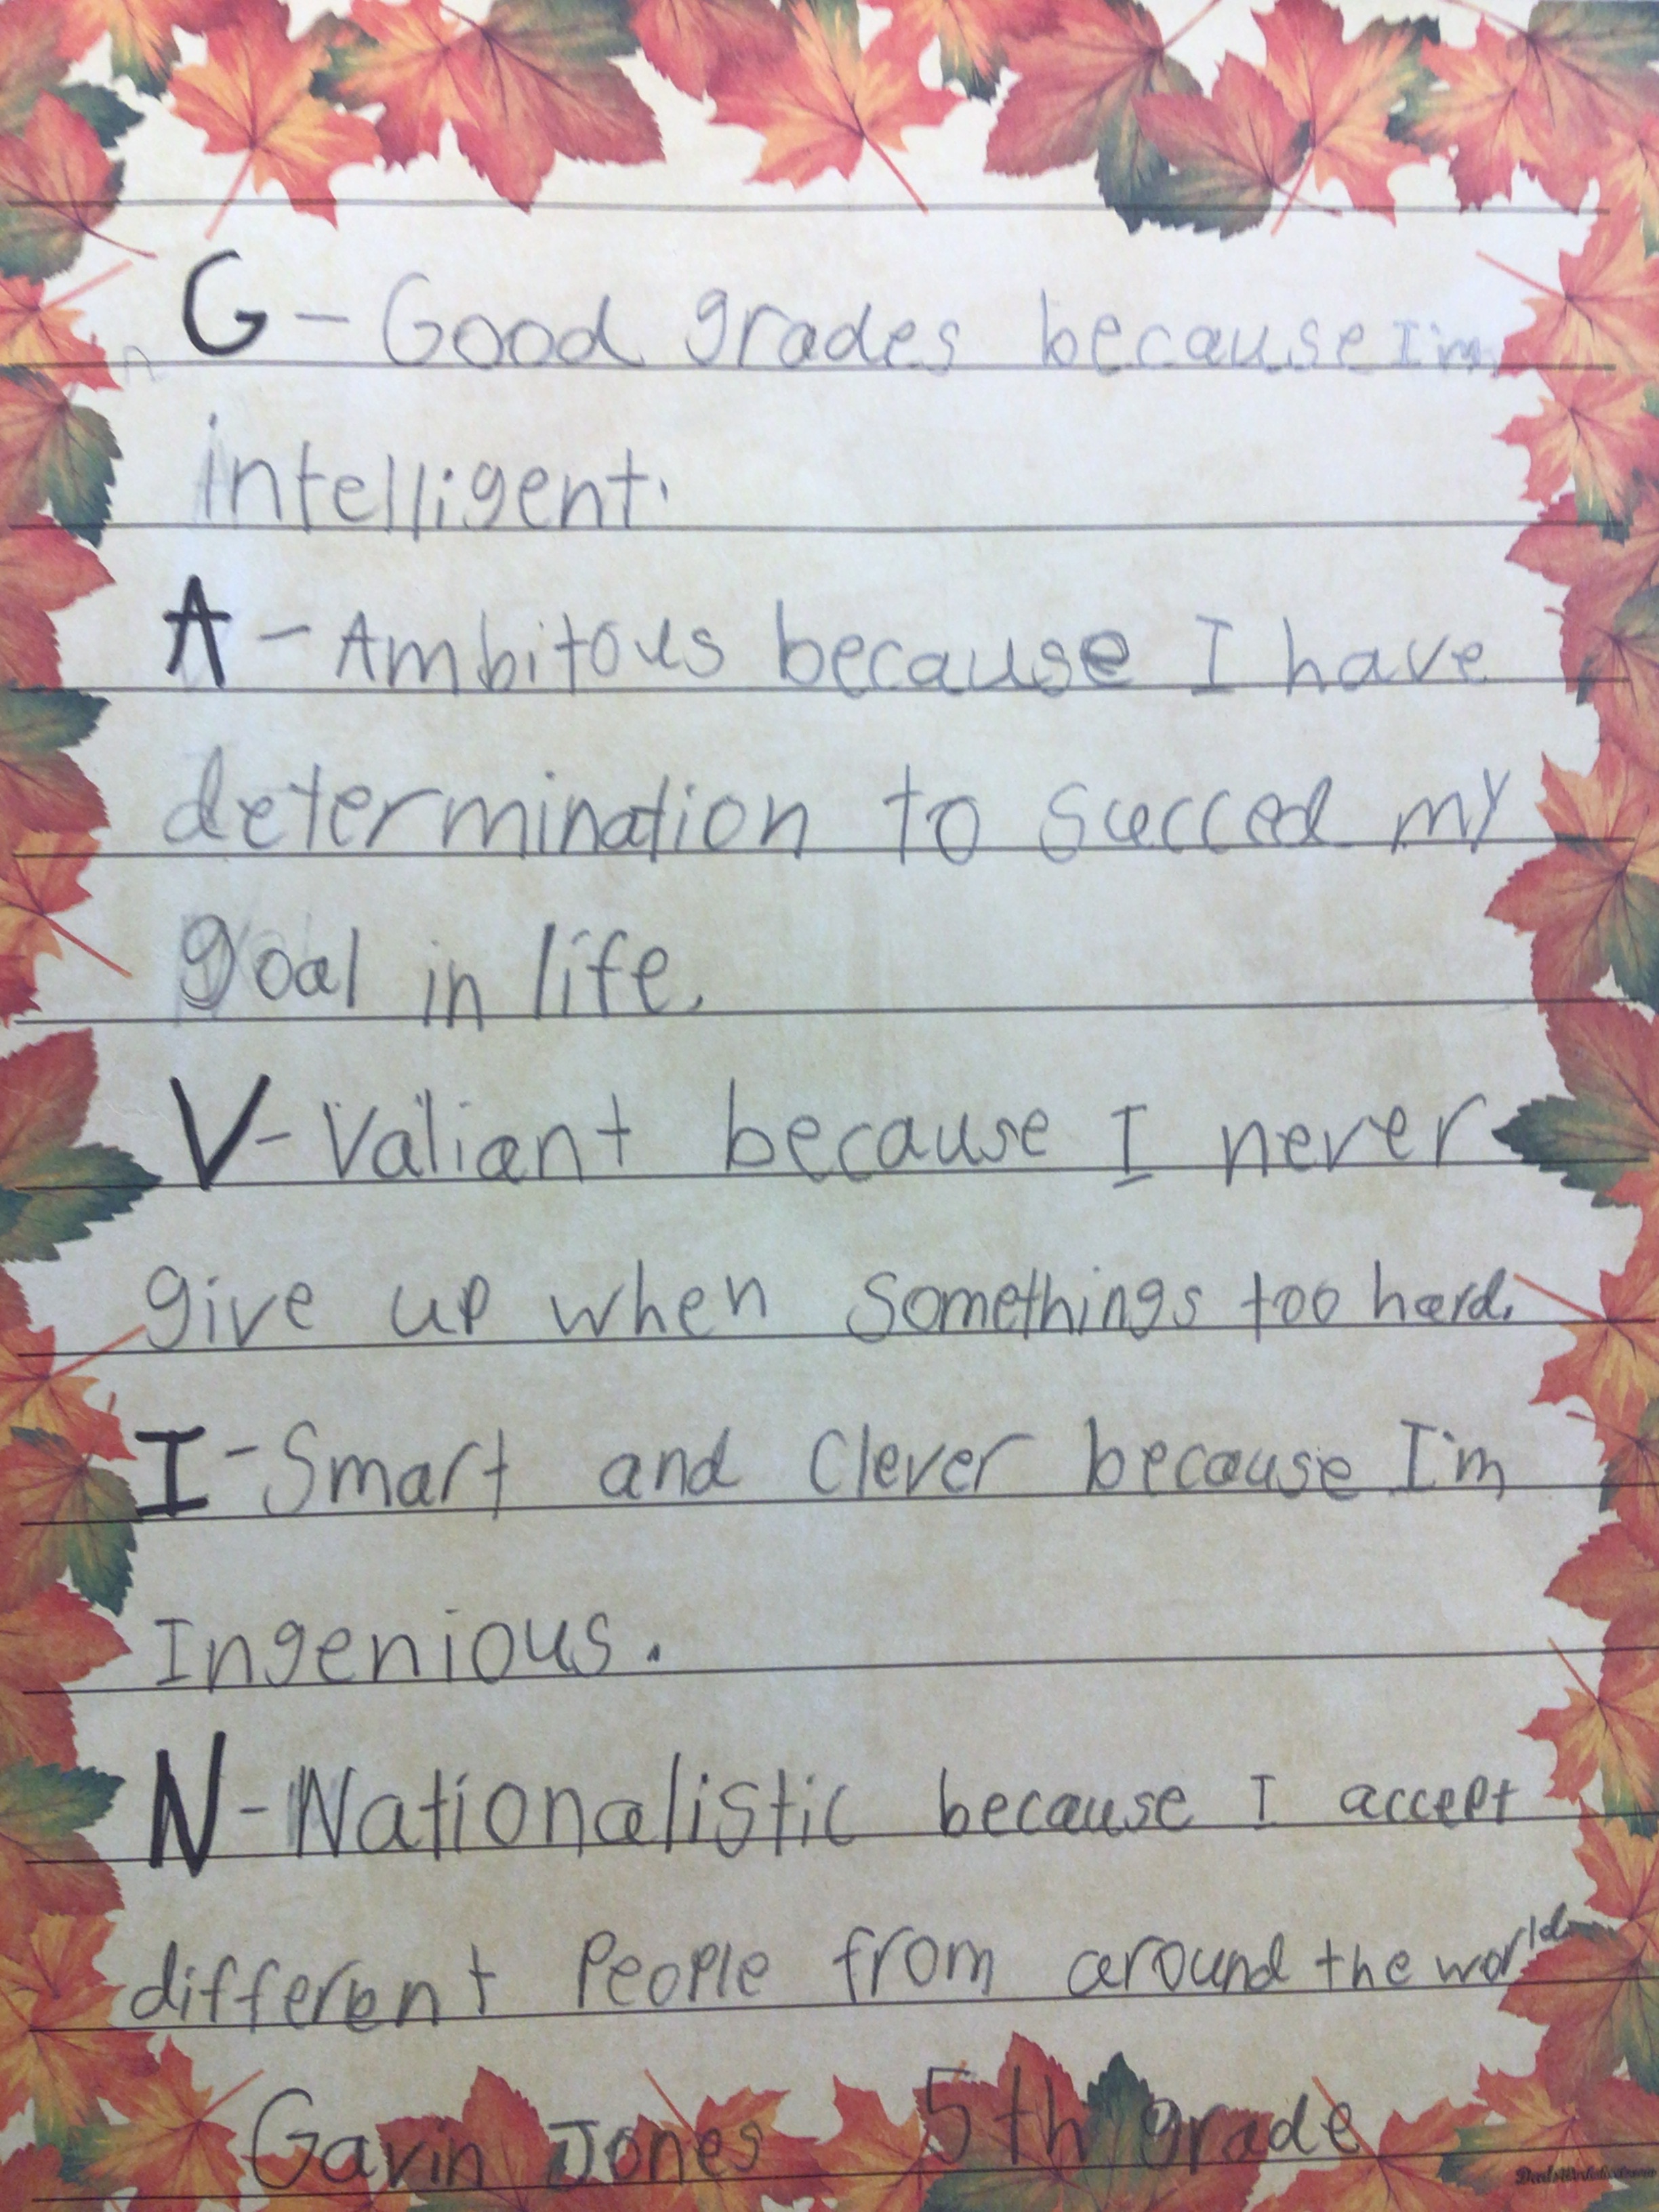 G - Good grades because I'm
intelligent.
A - Ambitous because I have
determination to succed my
goal in life.
V - Valiant because I never
give up when somethings too hard.
I - Smart and Clever because I'm
Ingenious.
N - Nationalistic because I accept
different People from around the world
Gavin Jones 5th grade